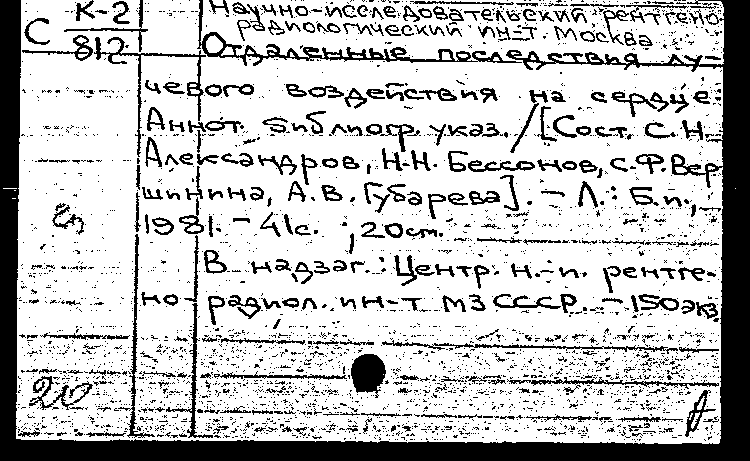 К-2
С 812
Научно-исследовательский рентгено-
радиологический ин-т. Москва.
Отдаленные последствия лу-
чевого воздействия на сердце:
Аннот. библиогр. указ. / [Сост. С. Н.
Александров, Н.Н. Бессонов, С.Ф. Вер
шинина, А. В. Губарева]. – Л.: Б.и.,
1981. – 41с. ; 20см.
В надзаг.: Центр. н.-и. рентге-
но-радиол. ин-т МЗ СССР. – 150экз